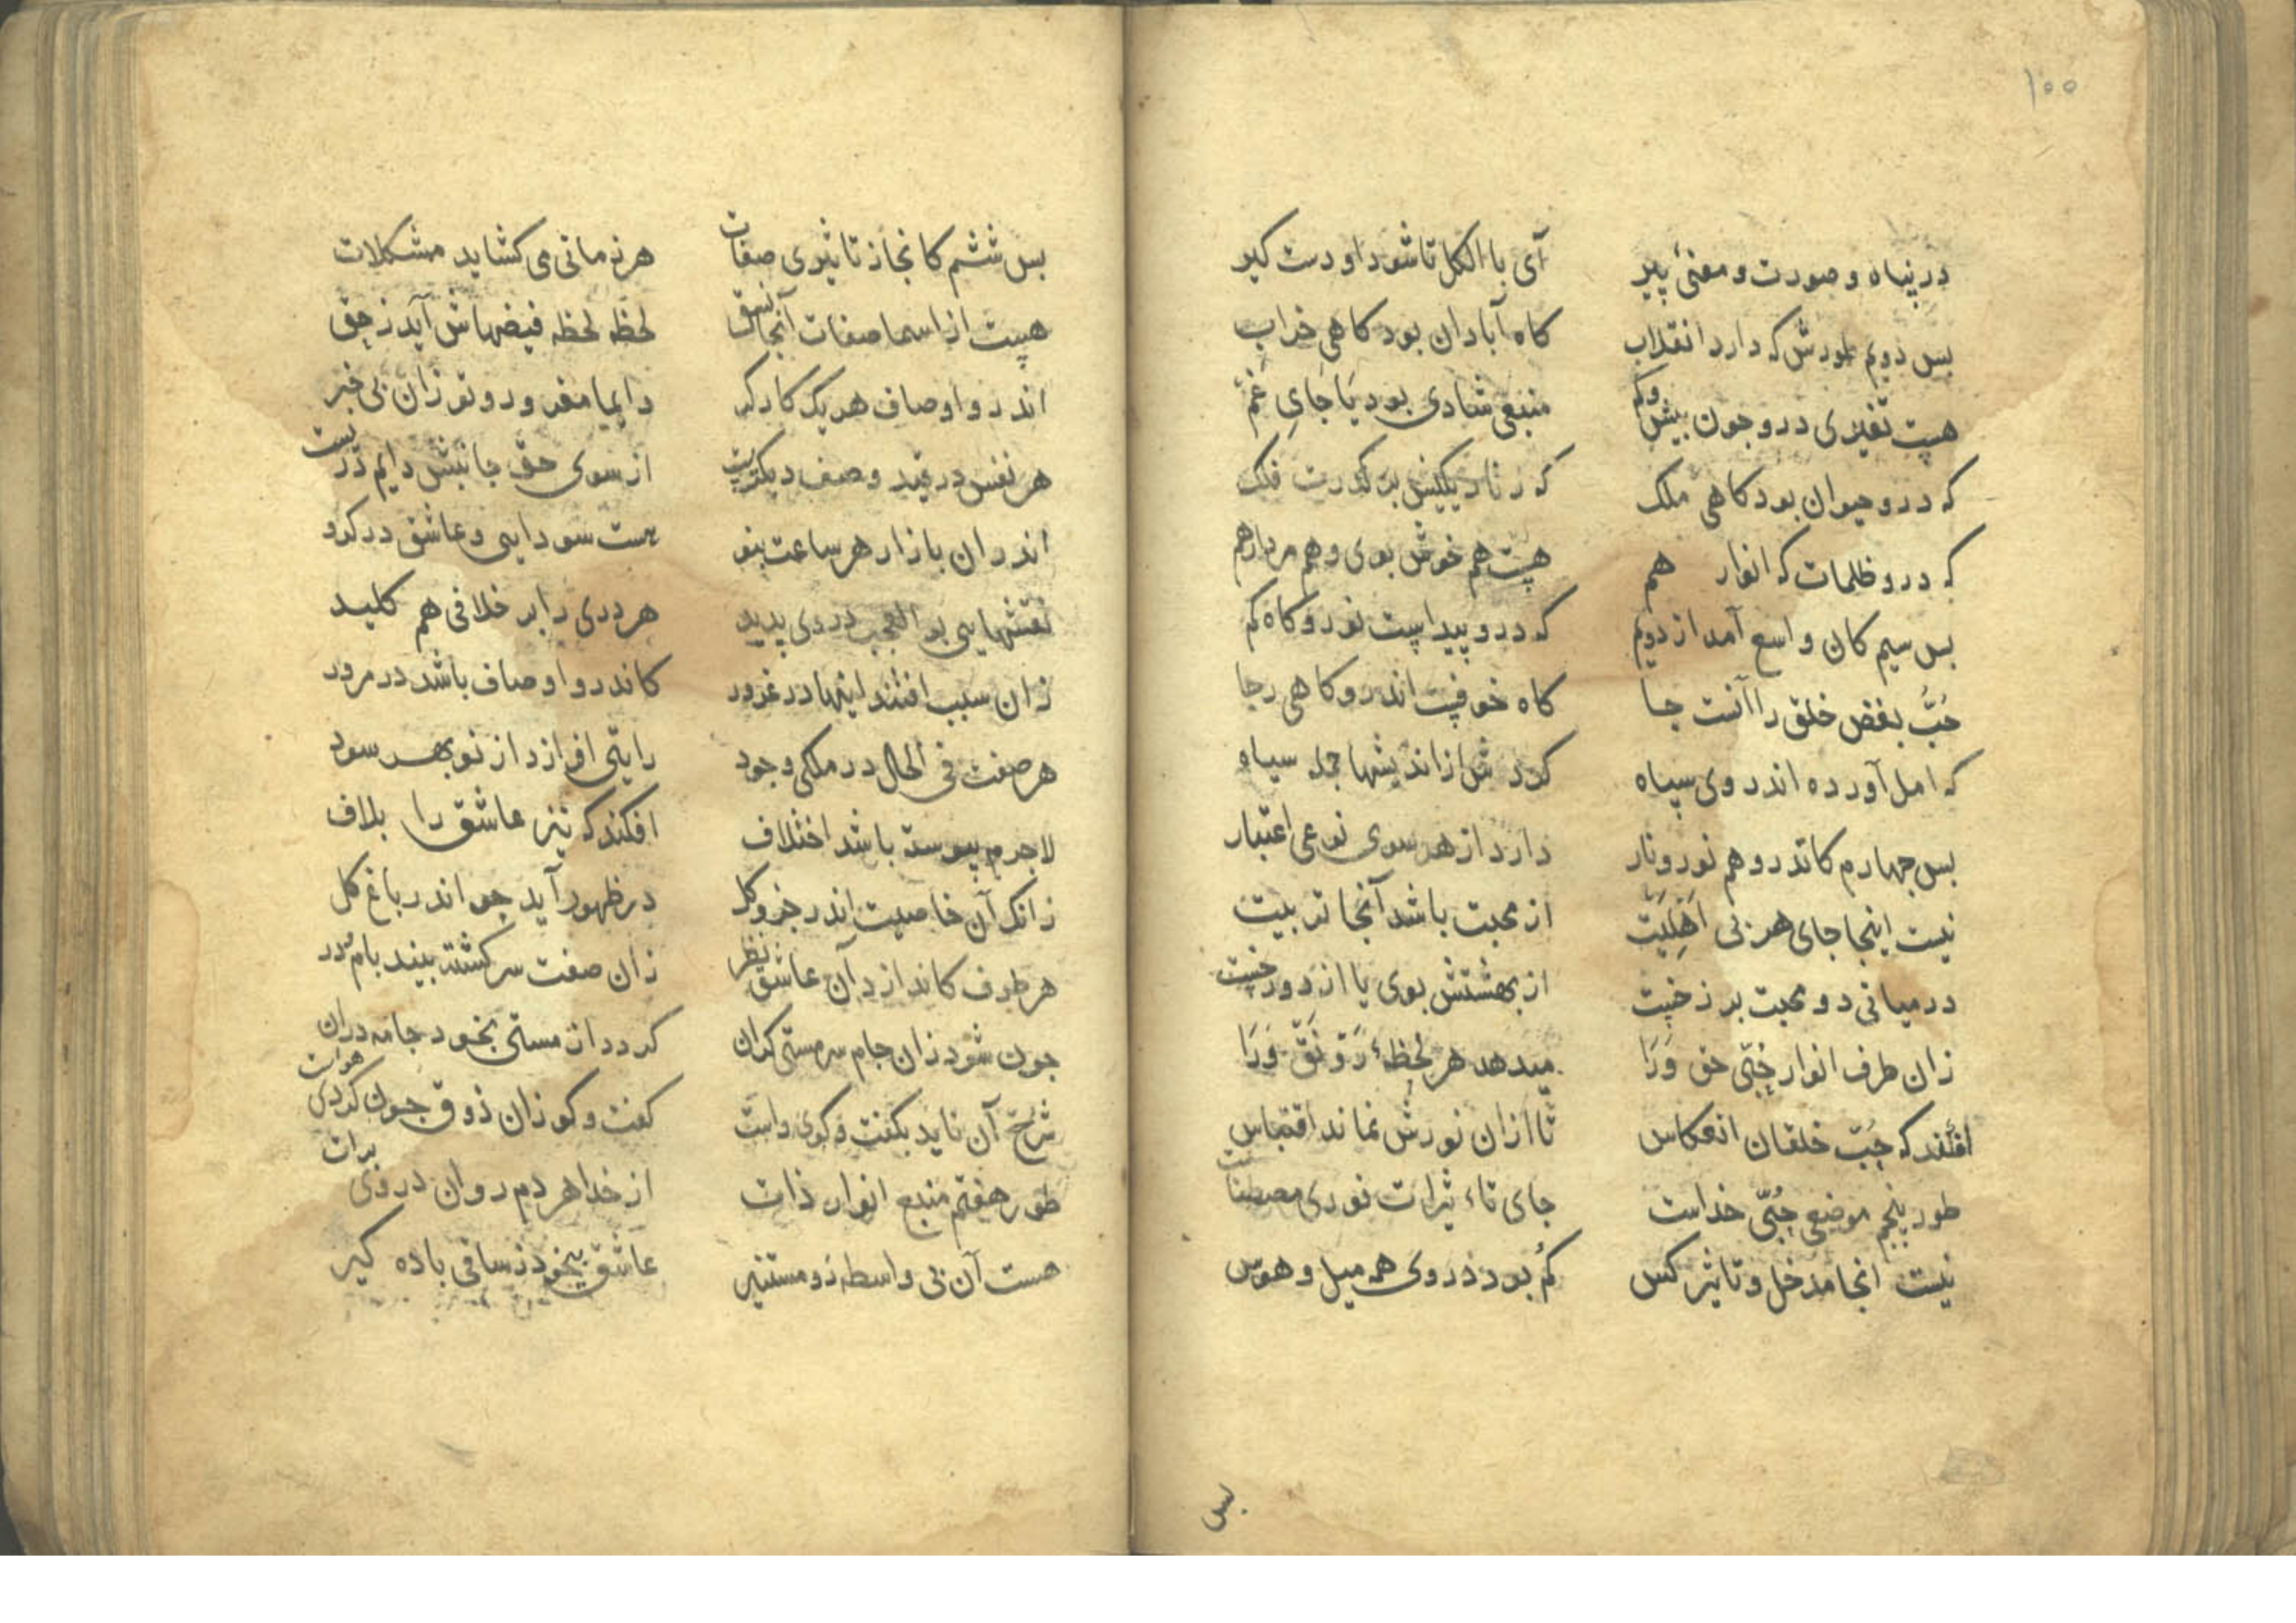 ۱۰۰
در پناه و صورت و معنئ پیر آی با الکل تا شود او دست کیر
بس دوم طورش که دارد انقلاب کاه آبادان بود کاهی خراب
هست تغیری درو جون بیش و کم منبعی شادی بود یا جای غم
که درو حیوان بود کاهی ملک که ز تاریکیش بر کدرت فلک
که درو ظلمات که انوار هم هست هم خوش بوی و هم مردار هم
بس سیم کان واسع آمد از دوم که درو پیداست نور و کاه کم
حب بغض خلق را آنست جا کاه خوفست اندرو کاهی رجا
که امل آورده اندر وی سپاه کردد ش از اندیشها جمله سیاه
بس جهارم کاندرو هم نور و نار دارد از هر سوی نوعی اعتبار
نیست اینجا جای هر بی اهلیت از محبت باشد آنجا تربیت
در میانی دو محبت برزخیست از بهشتش بوی یا از دوزخیست
زان طرف انوار حبی حق ورا میدهد هر لحظهٔ رونق ورا
افتند که حب خلقان انعکاس تا ازان نورش نماند اقتباس
طور پنجم موضعی حبی خداست جای تاء ثیرات نوری مصطفاست
نیست انجا مدخل و تاثیر کس کم بود در وی همه میل و هوس
بس
بس ششم کانجاز تاثیری صفات هر زمانی می کشاید مشکلات
هست از اسما صفات آنجا نسق لحظه لحظه فیضهاش آید ز حق
اندرو اوصاف هر یک کارکر دایما مغرور و تو زان بی خبر
هر نفس در قید وصف دیکرست از سوی حق جانبش دایم درست
اندران بازار هر ساعت بنو هست سودایی و عاشق در کرو
نقشهایی بو العجب در وی پدید هر دری را بر خلافی هم کلید
زان سبب افتند اینها در غرور کاندرو اوصاف باشد در مرور
هر صفت فی الحال در ملکی وجود رایتی افرازد از نو بهر سود
لاجرم پیوسته باشد اختلاف افکند که نیز عاشق را بلاف
زانک آن خاصیت اندر جزو کل در ظهور آید جو اندر باغ کل
هر طرف کاندازد آن عاشق نظر زان صفت سرکشته بیند بام و در
جون شود زان جام سرمستی کران کردد از مستی بخود جامه دران
شرح آن ناید بکفت و کوی راست کفت و کو زان ذوق جون کردی هواست
طور هفتم منبع انوار ذات از خدا هر دم روان در وی برات
هست آن بی واسطه زو مستنیر عاشق بیخود ز ساقی باده کیر